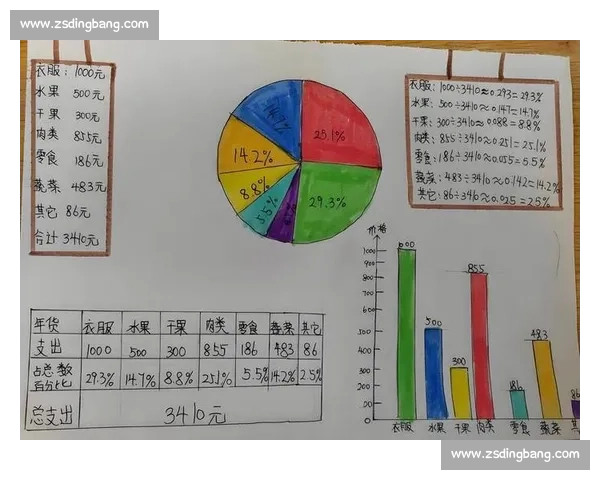 www.zsdingbang.com
衣服：1000元
水果 500元
干果 300元
肉类 855元
零食 186元
蔬菜 483元
其它 86元
合计 3410元
14.7%
25.1%
14.2%
8.8%
5.5%
29.3%
衣服：1000÷3410≈0.293=29.3%
水果：500÷3410≈0.147=14.7%
干果：300÷3410≈0.088=8.8%
肉类：855÷3410≈0.251=25.1%
零食：186÷3410≈0.055=5.5%
蔬菜：483÷3410≈0.142=14.2%
其它：86÷3410≈0.025=2.5%
年货 衣服 水果 干果 肉类 零食 蔬菜 其它
支出 1000 500 300 855 186 483 86
占总数百分比 29.3% 14.7% 8.8% 25.1% 5.5% 14.2% 2.5%
总支出 3410元
价格
1000
900
800
500
400
300
200
100
0
1000
500
300
855
186
483
86
衣服 水果 干果 肉类 零食 蔬菜 其
www.zsdingbang.com